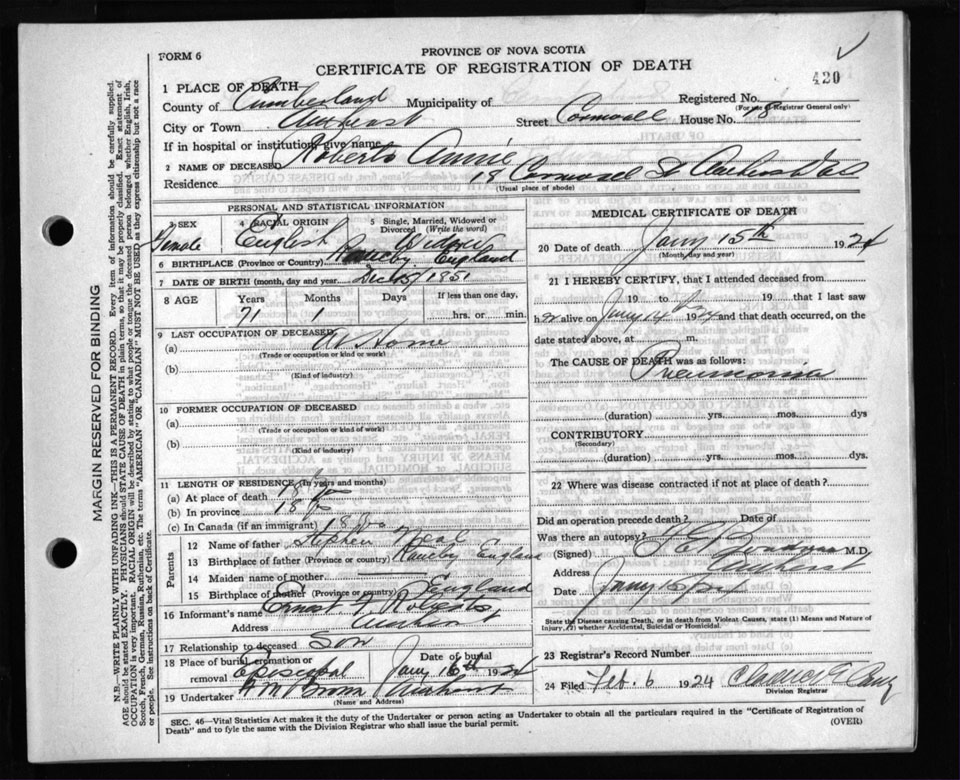 FORM 6
PROVINCE OF NOVA SCOTIA
CERTIFICATE OF REGISTRATION OF DEATH
420
1 PLACE OF DEATH
County of Cumberland Municipality of Registered No.
(For use of Registrar General only)
City or Town Amherst Street Cornwall House No. 18
If in hospital or institution give name
2 NAME OF DECEASED Roberts Annie
Residence 18 Cornwall St Amherst
(Usual place of abode)
PERSONAL AND STATISTICAL INFORMATION
3 SEX 4 RACIAL ORIGIN 5 Single, Married, Widowed or Divorced (Write the word)
Female English Widow
6 BIRTHPLACE (Province or Country) England
7 DATE OF BIRTH (month, day and year) Dec 15/1851
8 AGE Years Months Days If less than one day,
71 1 hrs. or min.
9 LAST OCCUPATION OF DECEASED
(a) At Home
(Trade or occupation or kind or work)
(b)
(Kind of industry)
10 FORMER OCCUPATION OF DECEASED
(a)
(Trade or occupation or kind of work)
(b)
(Kind of industry)
11 LENGTH OF RESIDENCE (In years and months)
(a) At place of death 18 yrs
(b) In province 18 yrs
(c) In Canada (if an immigrant) 18 yrs
Parents
12 Name of father Stephen Neal
13 Birthplace of father (Province or Country) England
14 Maiden name of mother
15 Birthplace of mother (Province or country) England
16 Informant's name Ernest Roberts
Address Amherst
17 Relationship to deceased Son
18 Place of burial, cremation or removal Episcopal Date of burial Jany 16th 1924
19 Undertaker Brown Amherst
(Name and Address)
MEDICAL CERTIFICATE OF DEATH
20 Date of death Jany 15th 1924
(Month, day and year)
21 I HEREBY CERTIFY, that I attended deceased from
19 to 19 that I last saw
h er alive on Jany 14 1924 and that death occurred, on the
date stated above, at m.
The CAUSE OF DEATH was as follows:
Pneumonia
(duration) yrs. mos. dys
CONTRIBUTORY
(Secondary)
(duration) yrs. mos. dys.
22 Where was disease contracted if not at place of death?
Did an operation precede death? Date of
Was there an autopsy?
(Signed) M.D.
Address Amherst
Date Jany
State the Disease causing Death, or in death from Violent Causes, state (1) Means and Nature of Injury, (2) whether Accidental, Suicidal or Homicidal.
23 Registrar's Record Number
24 Filed Feb. 6 1924
Division Registrar
SEC. 46—Vital Statistics Act makes it the duty of the Undertaker or person acting as Undertaker to obtain all the particulars required in the "Certificate of Registration of
Death" and to fyle the same with the Division Registrar who shall issue the burial permit. (OVER)
MARGIN RESERVED FOR BINDING
N.B.—WRITE PLAINLY WITH UNFADING INK—THIS IS A PERMANENT RECORD. Every item of information should be carefully supplied.
AGE should be stated EXACTLY. PHYSICIANS should STATE CAUSE OF DEATH in plain terms, so that it may be properly classified. Exact statement of
OCCUPATION is very important. RACIAL ORIGIN will be described by stating to what people or tongue the deceased person belonged, whether English, Irish,
Scotch, French, German, Russian, Ruthenian, etc. The terms "AMERICAN" OR "CANADIAN" MUST NOT BE USED as they express citizenship but not a race
or people. See instructions on back of Certificate.